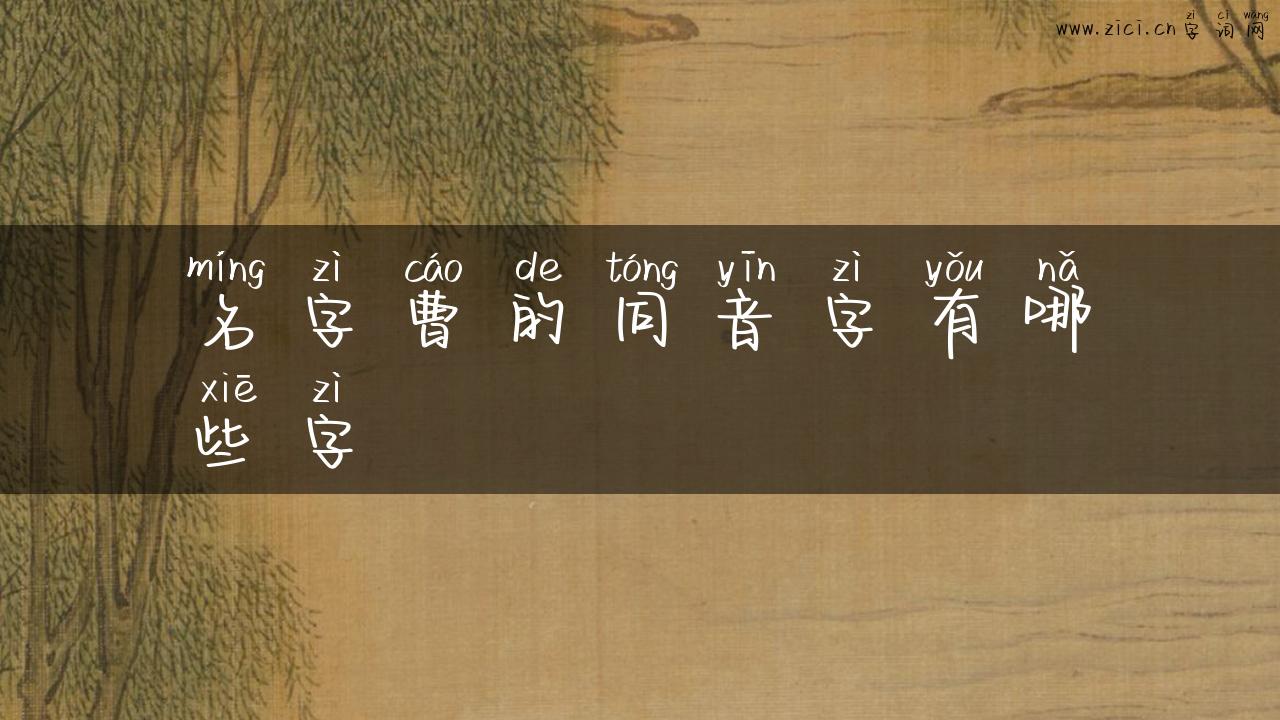 zì cí wǎng
www.zici.cn字词网
míng zì cáo de tóng yīn zì yǒu nǎ
名字曹的同音字有哪
xiē zì
些字